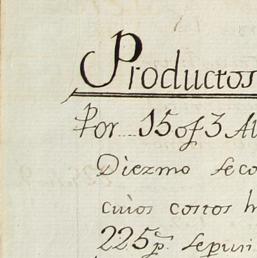 Productos
Por 15 of 3 Al
Diezmo seco
cuios costos h
225 p.